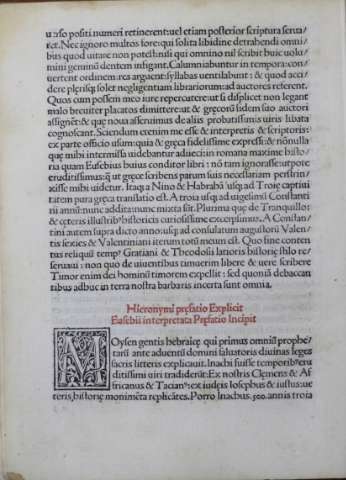 uerso positi numeri retinerent: uel etiam posterior scriptura serua/
ret. Nec ignoro multos fore: qui solita libidine detrahendi omni/
bus quod uitare non potest: nisi qui omnino nil scribit huic uolu/
mini genuinū dentem infigant. Calumniabuntur in tempora: con/
uertent ordinem: res arguent: syllabas uentilabunt: & quod acci/
dere plerūq; solet negligentiam librariorum ad auctores referent.
Quos cum possem meo iure repercutere: ut si displicet non legant
malo breuiter placatos dimittere: ut & gręcorū fidem suo auctori
assignēt: & quę noua asseruimus de aliis probatissimis uiris libata
cognoscant. Sciendum etenim me esse & interpretis & scriptoris:
ex parte officio usum: quia & gręca fidelissime expressi: & nōnulla
quę mihi intermissa uidebantur adieci: in romana maxime histo/
ria quam Eusebius huius conditor libri: nō tam ignorasse: utpote
eruditissimus: q̄ ut gręce scribens parum suis necessariam perstrin
xisse mihi uidetur. Itaq; a Nino & Habrahā usq; ad Troię captiui
tatem pura gręca translatio est. A troia usq; ad uigesimū Constanti
ni annū: nunc addita: nunc mixta sūt. Plurima quę de Tranquillo:
& cęteris illustrib⁹ historicis curiosissime excerpsimus. A Constan/
tini autem supra dicto anno: usq; ad consulatum augustorū Valen/
tis sexies & Valentiniani iterum totū meum est. Quo fine conten
tus reliquū temp⁹ Gratiani & Theodosii latioris historię stilo re/
seruaui: non quo de uiuentibus timuerim libere & uere scribere
Timor enim dei hominū timorem expellit: sed quoniā debacchan
tibus adhuc in terra nostra barbaris incerta sunt omnia.
Hieronymi pręfatio Explicit
Eusebii interpretata Pręfatio Incipit
MOysen gentis hebraicę qui primus omniū prophe/
tarū ante aduentū domini saluatoris diuinas leges
sacris litteris explicauit. Inachi fuisse temporib⁹ eru
ditissimi uiri tradiderūt: Ex nostris Clemens & Af
fricanus & Tacian⁹: ex iudeis Iosephus & iustus: ue
teris, historię monimēta replicātes. Porro Inachus. 500. annis troia